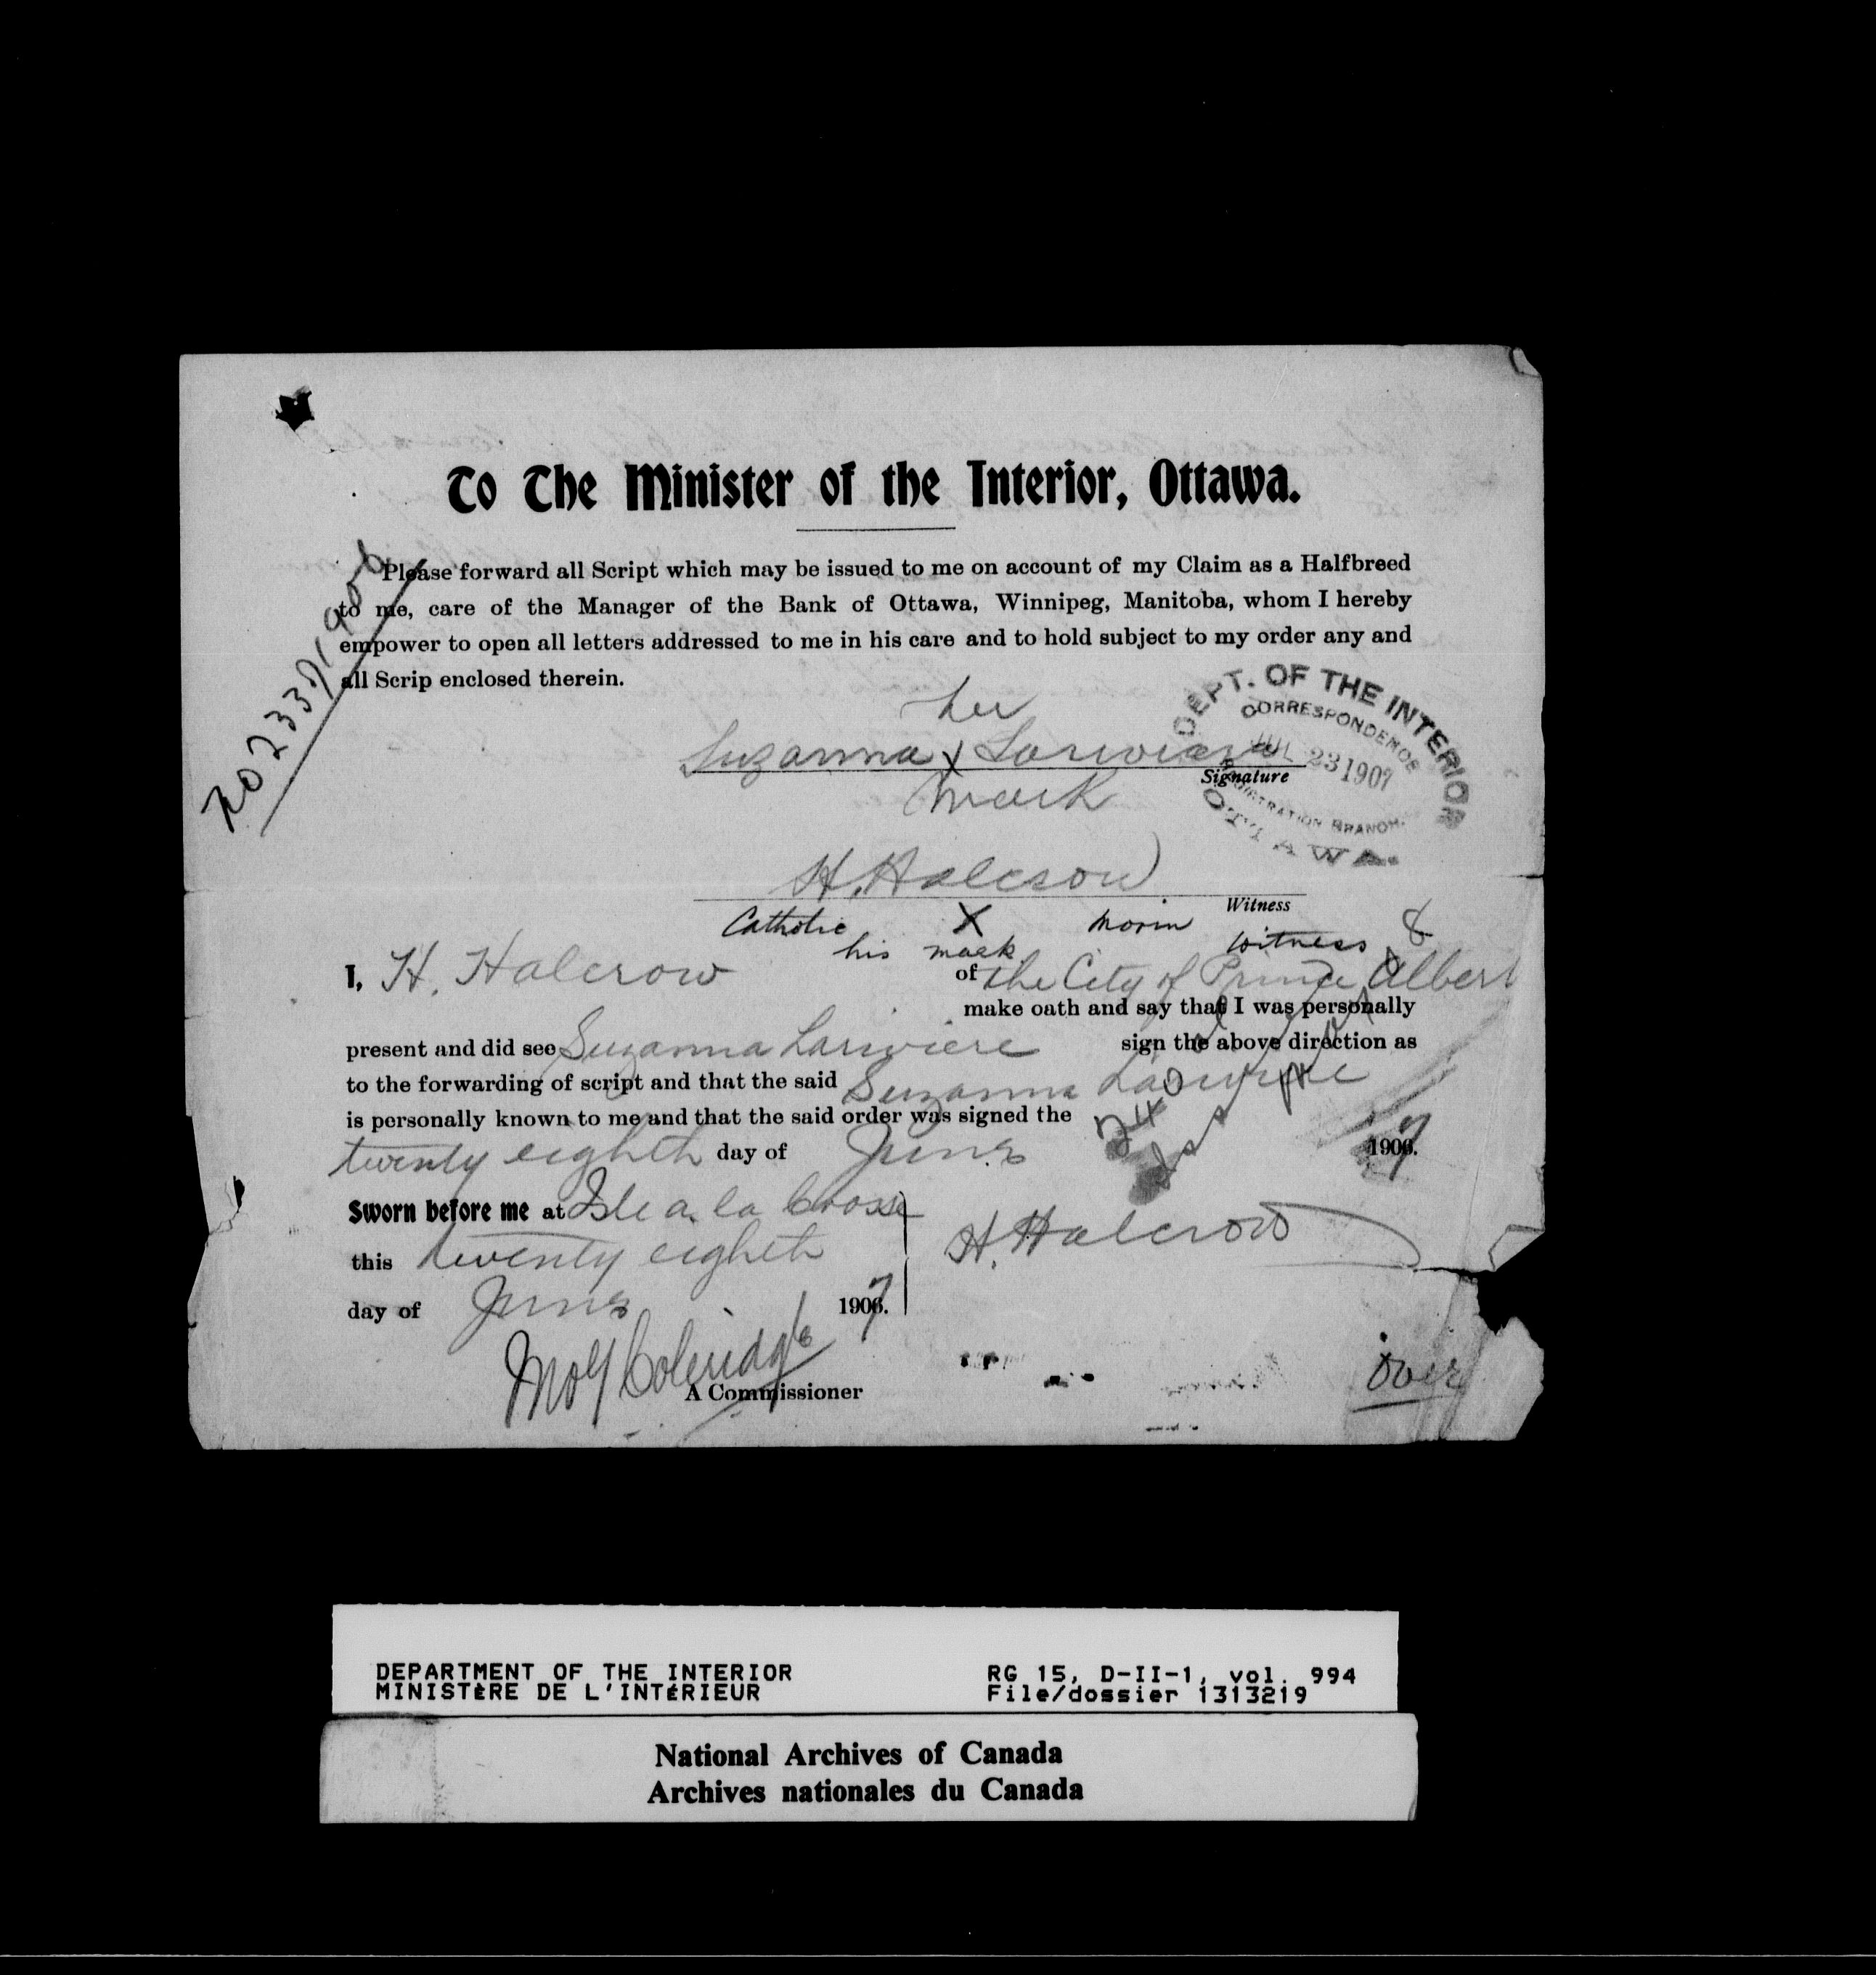 To The Minister of the Interior, Ottawa.
Please forward all Script which may be issued to me on account of my Claim as a Halfbreed
to me, care of the Manager of the Bank of Ottawa, Winnipeg, Manitoba, whom I hereby
empower to open all letters addressed to me in his care and to hold subject to my order any and
all Scrip enclosed therein.
her
Suzanna X Lariviere
Signature
mark
DEPT. OF THE INTERIOR
CORRESPONDENCE
JUL 23 1907
REGISTRATION BRANCH.
OTTAWA.
H. Halcrow
Witness
Catholic X Morin
his mark witness
I, H. Halcrow of the City of Prince Albert
make oath and say that I was personally
present and did see Suzanna Lariviere sign the above direction as
to the forwarding of script and that the said Suzanna Lariviere
is personally known to me and that the said order was signed the
twenty eighth day of June 1907.
Sworn before me at Isle a la Crosse
this twenty eighth
H. Halcrow
day of June 1907.
Coleridge
A Commissioner
over
DEPARTMENT OF THE INTERIOR
MINISTÈRE DE L'INTÉRIEUR
RG 15, D-II-1, vol. 994
File/dossier 1313219
National Archives of Canada
Archives nationales du Canada